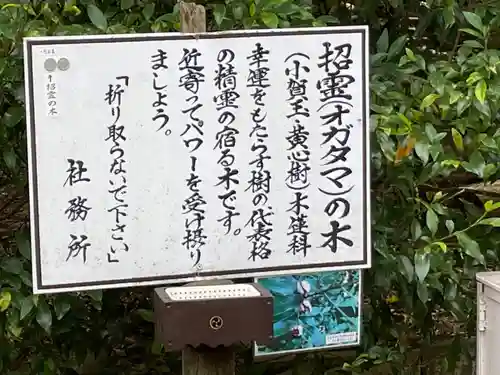 招霊(オガタマ)の木
(小賀玉・黄心樹)木蓮科
幸運をもたらす樹の代表格
の精霊の宿る木です。
近寄ってパワーを受け摂り
ましょう。
「祈り取らないで下さい」
社務所
招霊の木